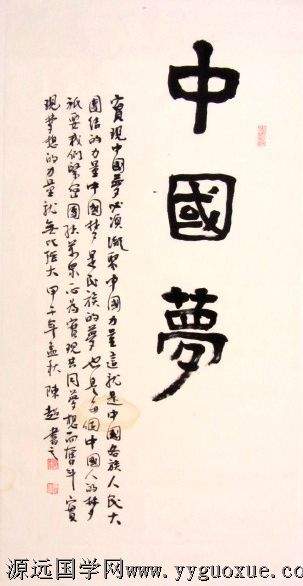 中國夢
實現中國夢必須凝聚中國力量這就是中國各族人民大
團結的力量中國梦是民族的夢也是每個中國人的梦
祇要我們緊密團結萬衆一心為實現共同夢想而奮斗實
現梦想的力量就無比强大甲午年孟秋陳超書之
源远国学网www.yyguoxue.com